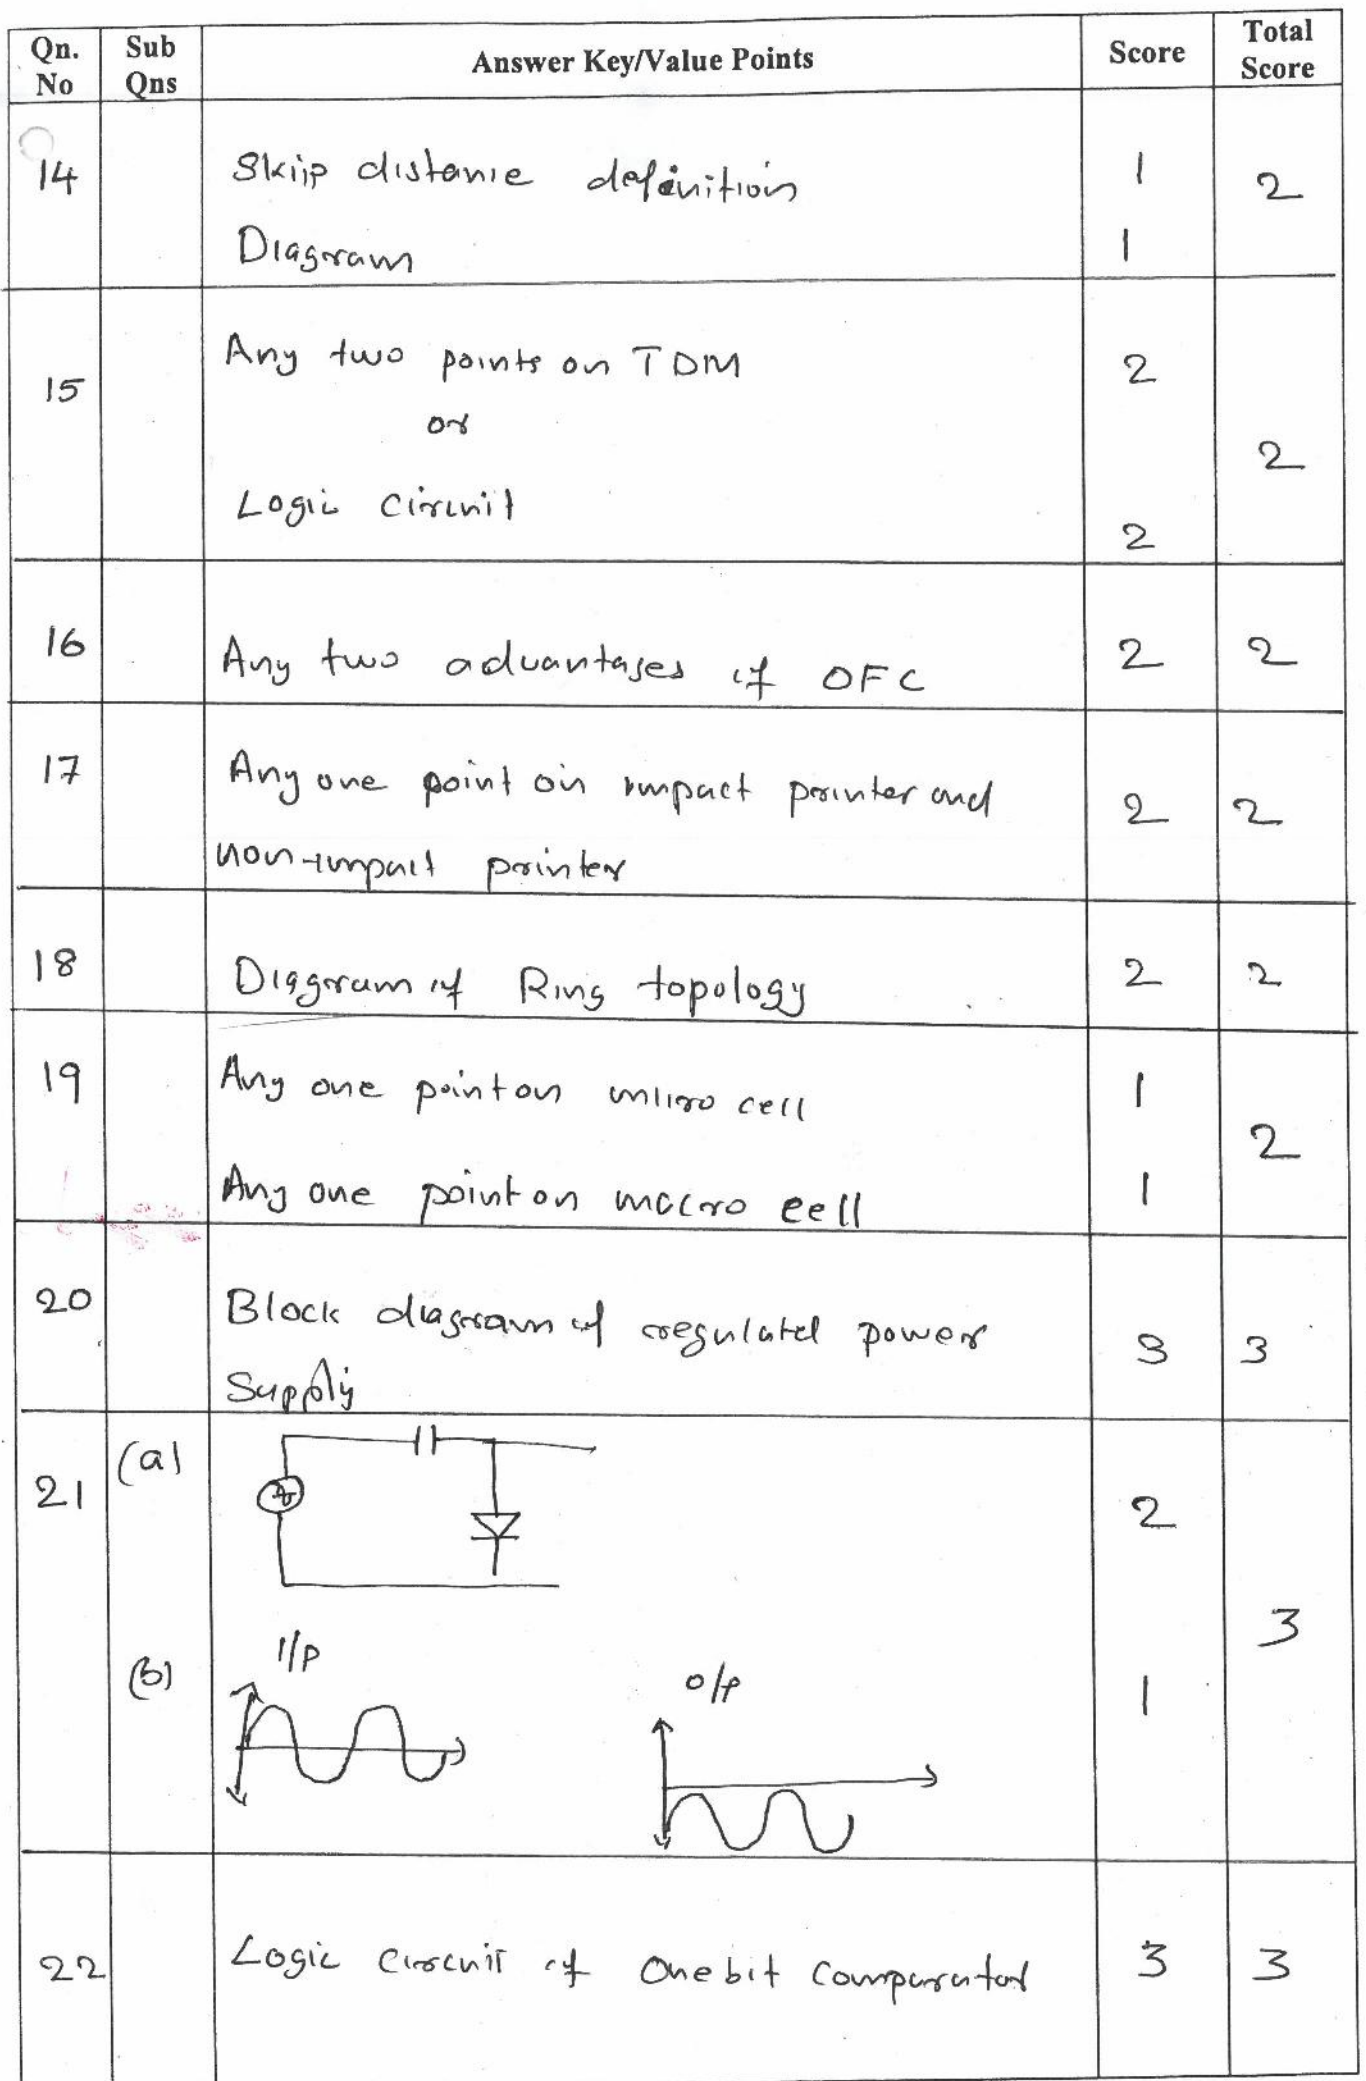 Qn. No Sub Qns Answer Key/Value Points Score Total Score
14 Skip distance definition 1 2
Diagram 1
15 Any two points on TDM 2
or 2
Logic circuit 2
16 Any two advantages of OFC 2 2
17 Any one point on impact printer and 2 2
non-impact printer
18 Diagram of Ring topology 2 2
19 Any one point on micro cell 1
2
Any one point on macro cell 1
20 Block diagram of regulated power 3 3
Supply
21 (a) 2
3
(b) I/P O/P 1
22 Logic circuit of One bit Comparator 3 3